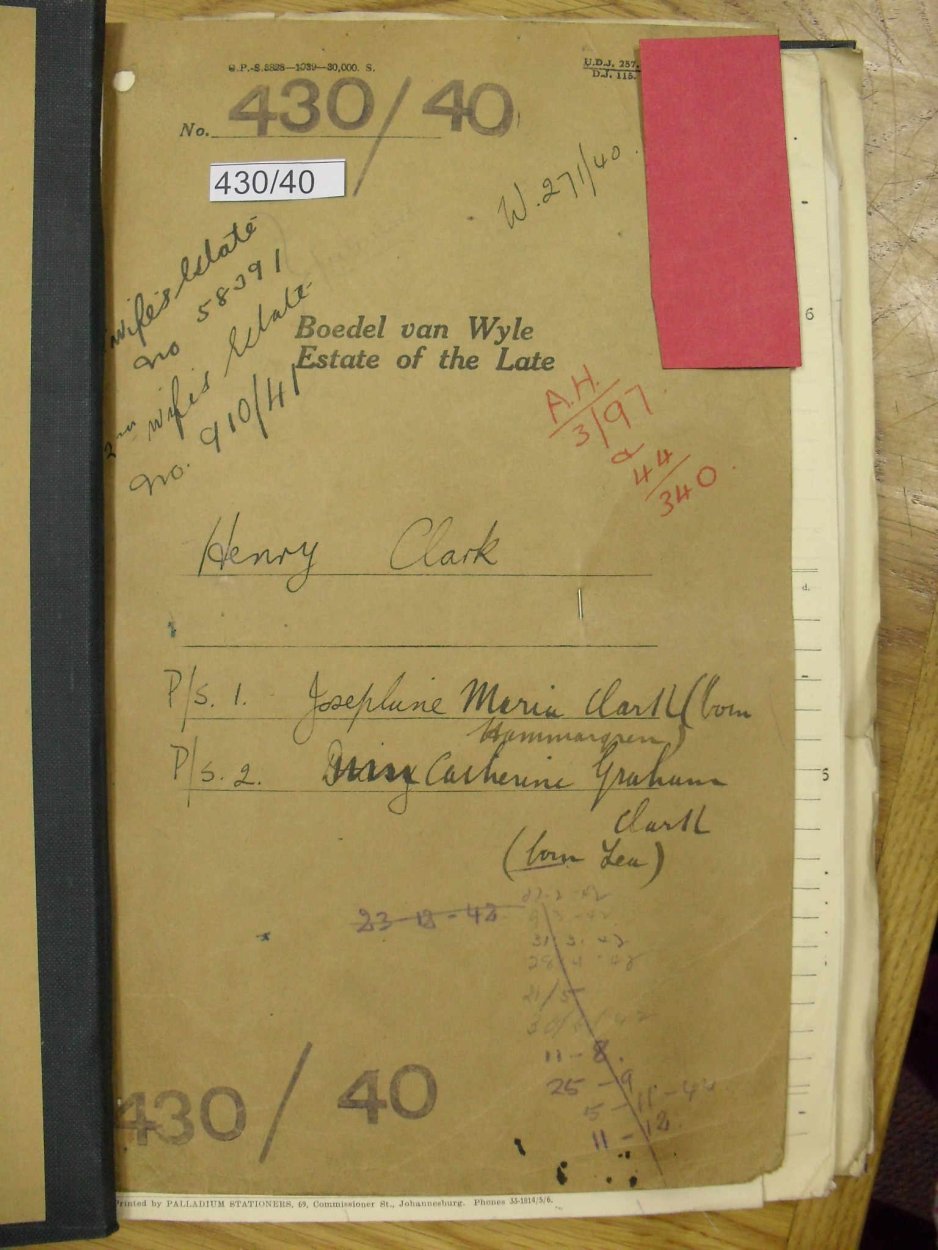 G.P.-S.8828—1939—30,000. S.
U.D.J. 257.
D.J. 115.
No. 430/40
430/40
W. 271/40.
wife's Estate
no 58391
2nd wife's Estate
no. 910/41
Boedel van Wyle
Estate of the Late
A.H.
3/97.
44
340.
Henry Clark
P/S. 1. Josephine Maria Clark (born
Hammargren)
P/S. 2. Catherine Graham
Clark
(born Lea)
23-12-42
31.3.42
28.4.42
21/5
11-8.
25-9
5-11-42
11-12
430/40
Printed by PALLADIUM STATIONERS, 69, Commissioner St., Johannesburg. Phones 33-1814/5/6.
6
d.
5